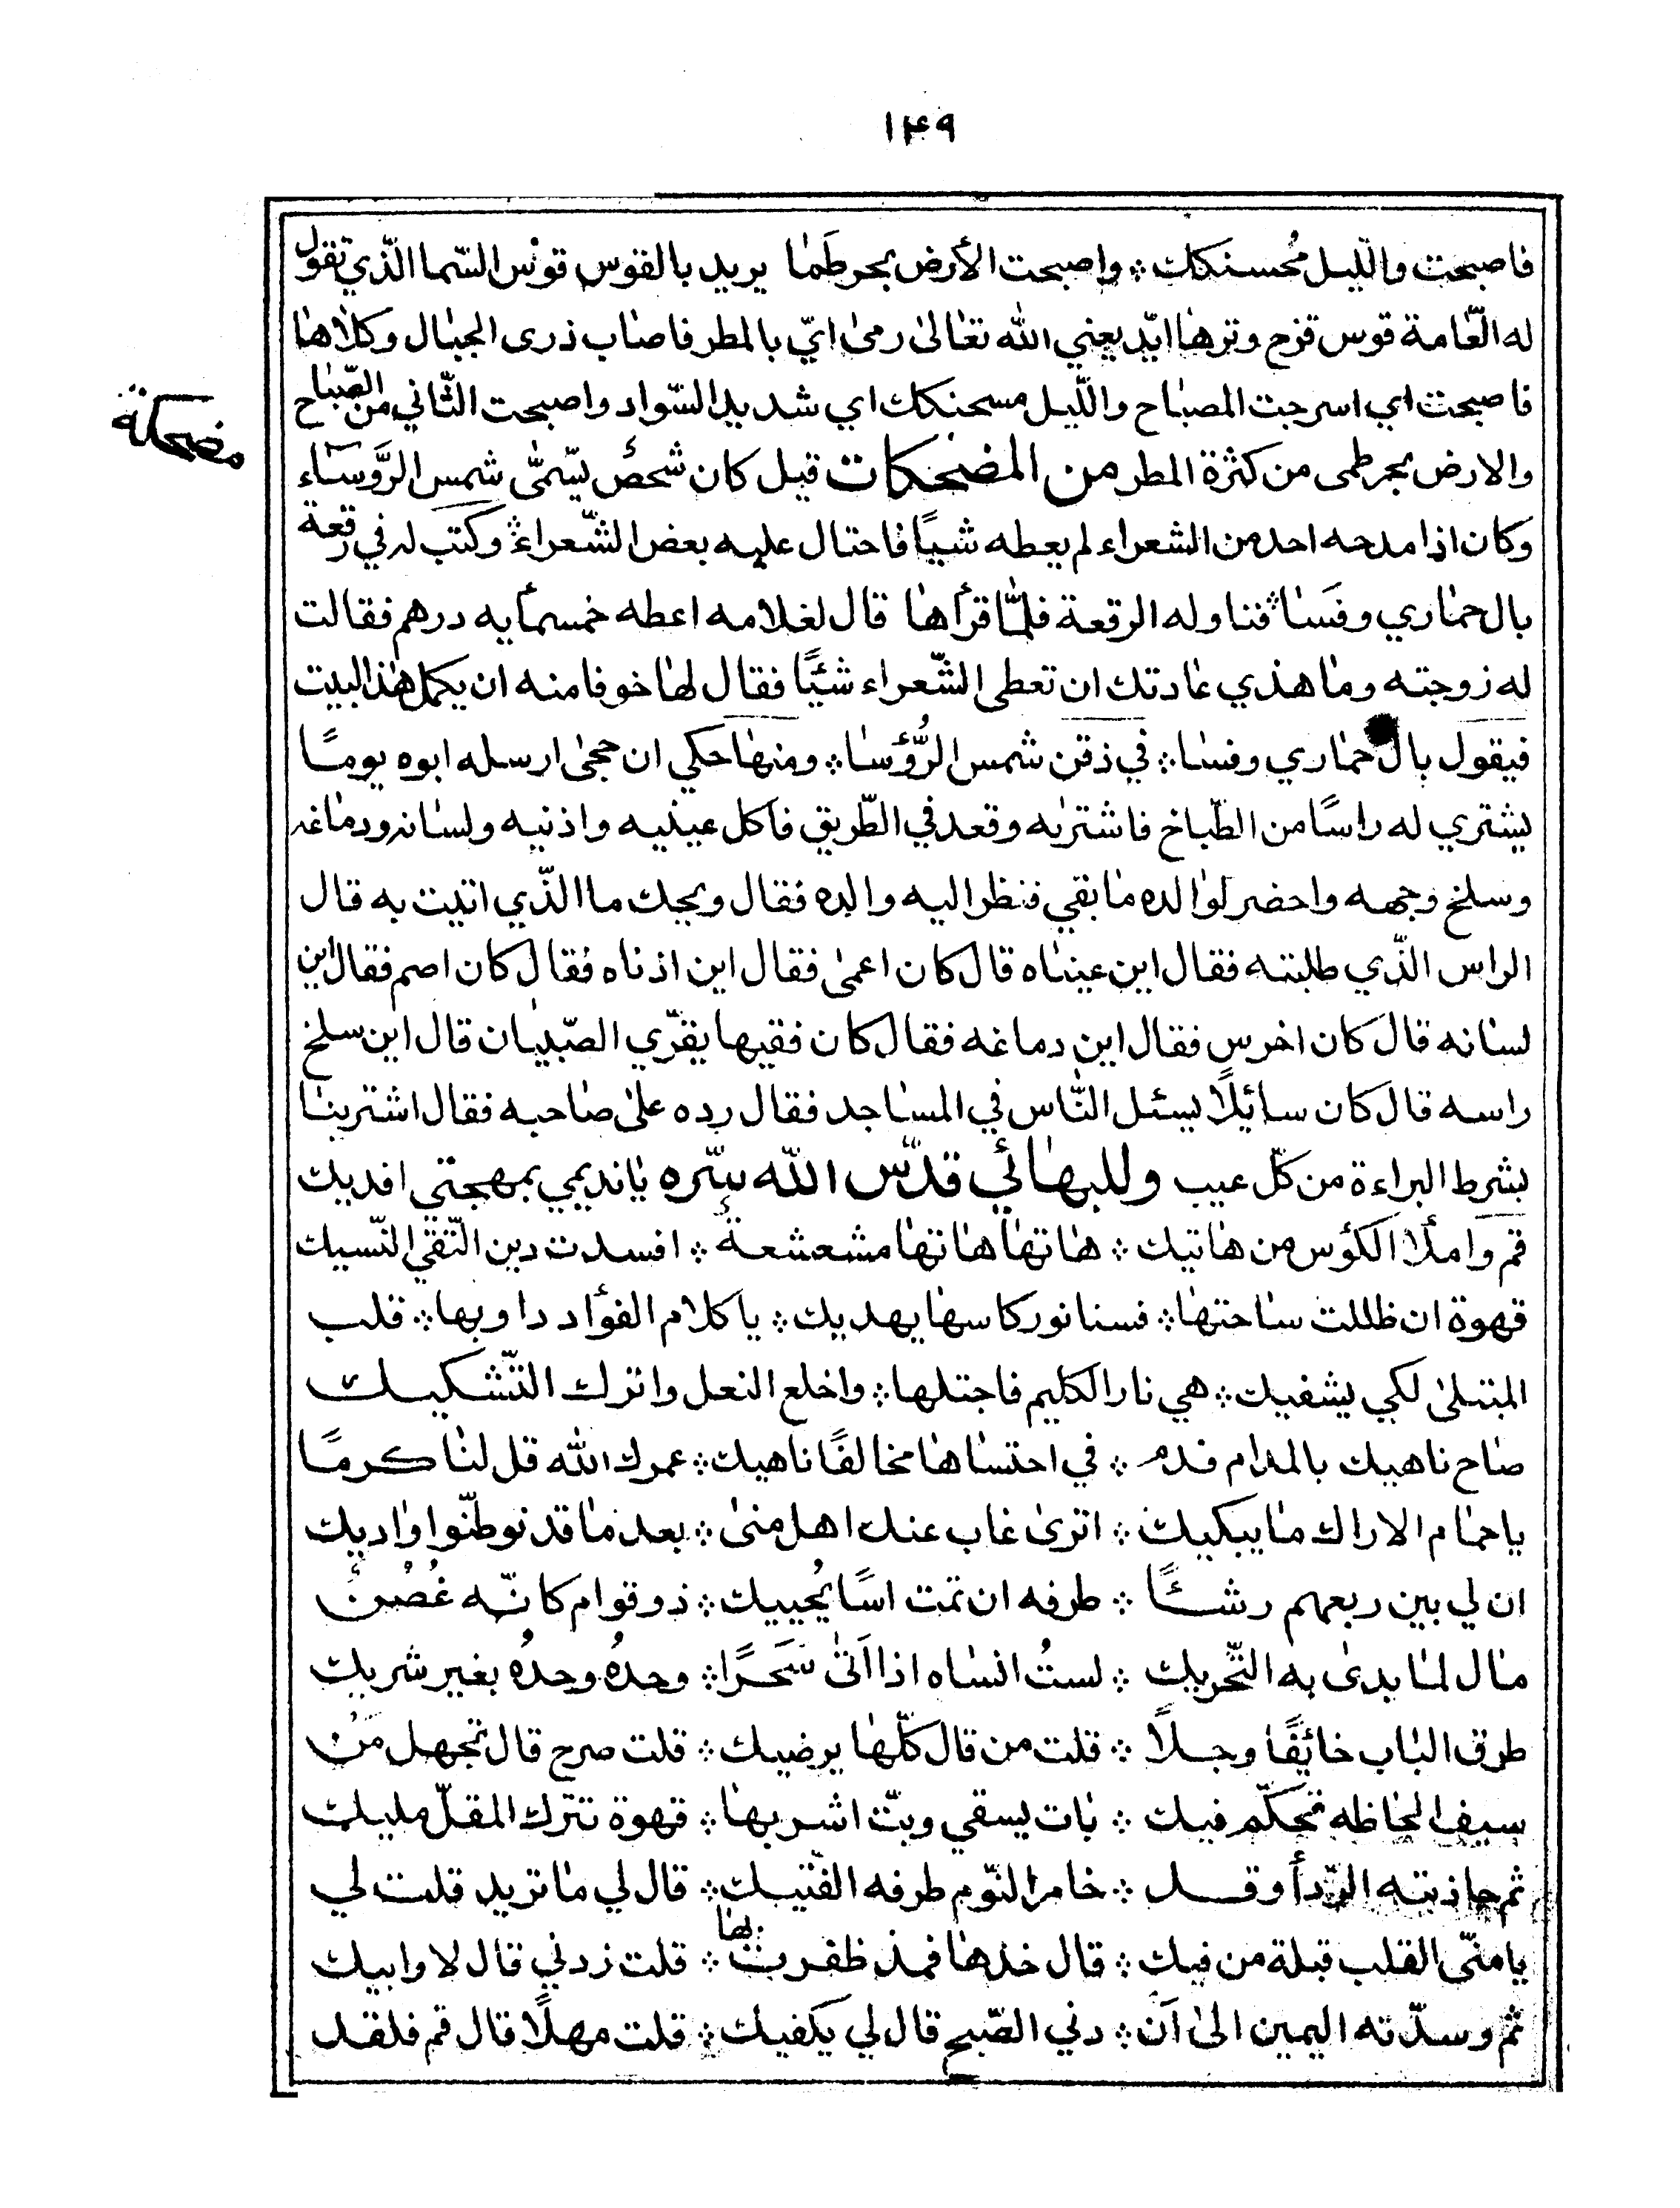 ١۴٩
فاصبحت والّليل مُحسنكك ؞ واصبحت الأرض بحرطَما يريد بالقوس قوْس السّما الّذي تقول
له العّامة قوس قزح وترها ايّد يعني الله تعالى رمى ايّ بالمطر فاصاب ذرى الجبال وكلاها
فاصبحت اي اسرجت المصباح والّليل مسحنكك اي شديد السّواد واصبحت الثّاني من الصّباح
مضحكة
والارض بحر طمى من كثرة المطر من المضحكات قيل كان شخصٌ يسّمىّ شمس الرَّوساء
وكان اذا مدحه احد من الشعراء لم يعطه شيئًا فاحتال عليه بعض الشّعراء ؞ وكتب له في رقعة
بال حماري وفَسَا ؞ فناوله الرقعة فلمّا قرأها قال لغلامه اعطه خمسمأيه درهم فقالت
له زوجته وما هذي عادتك ان تعطى الشّعراء شئيًا فقال لها خوفا منه ان يكمل هذا البيت
فيقول بال حماري وفسا ؞ في ذقن شمس الرُّؤسا ؞ ومنها حكي ان حجى ارسله ابوه يومًا
يشتري له راسًا من الطّباخ فاشتريه وقعد في الطّريق فاكل عينيه واذنيه ولسانه ودماغه
وسلخ وجهه واحضر لوالده ما بقي فنظر اليه والده فقال ويحك ما الّذي اتيت به قال
الراس الّذي طلبته فقال اين عيناه قال كان اعمى فقال اين اذناه فقال كان اصم فقال اين
لسانه قال كان اخرس فقال اين دماغه فقال كان فقيها يقرّي الصّبيان قال اين سلخ
راسه قال كان سائلًا يسئل النّاس في المساجد فقال رده على صاحبه فقال اشترينا
بشرط البراءة من كلّ عيب وللبهائي قدّس الله سّره يا نديمي بمهجتي افديك
قم وامأْلا الكؤس من هاتيك ؞ هاتها هاتها مشعشعةً ؞ افسدت دين التّقي النّسيك
قهوة ان ظللت ساحتها ؞ فسنا نور كاسها يهديك ؞ يا كلام الفؤاد داو بها ؞ قلب
المبتلى لكي يشفيك ؞ هي نار الكليم فاجتلها ؞ واخلع النعل واترك التّشكيك
صاح ناهيك بالمدام فدم ؞ في احتساها مخالفًا ناهيك ؞ عمرك الله قل لنا كرمًا
يا حمام الاراك ما يبكيك ؞ اترى غاب عنك اهل منى ؞ بعد ما قد توطنّوا واديك
ان لي بين ربعهم رشئًا ؞ طرفه ان تمت اسًا يُحييك ؞ ذو قوام كانّه غُصْنٌ
مال لما بدى به التّحريك ؞ لستُ انساه اذا اَتى سَحَرًا ؞ وحدهُ وحدهُ بغير شريك
طرق الباب خائفًا وجلًا ؞ قلت من قال كلّها يرضيك ؞ قلت صرح قال تجهل مَنْ
سيف الحاظه تحكّم فيك ؞ بات يسقي وبتّ اشربها ؞ قهوة تترك المقلّ مليك
ثم جاذبته الرّدأ وقل ؞ خامر النّوم طرفه الفّتيك ؞ قال لي ما تريد قلت لي
يا منىّ القلب قبلة من فيك ؞ قال خذها فمذ ظفرت بها ؞ قلت زدني قال لا وابيك
ثم وسدّته اليمين الى اَن ؞ دني الصّبح قال لي يكفيك ؞ قلت مهلًا قال قم فلقد